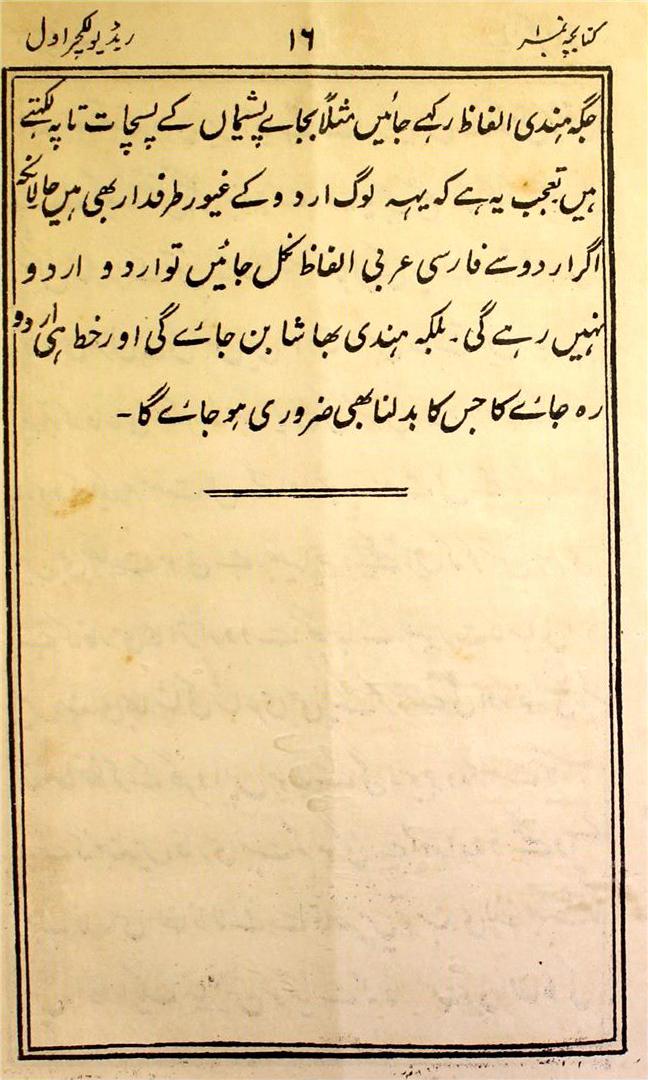 کتابچہ نمبر ۱ ۱۶ ریڈیو لکچر اول
جگہ ہندی الفاظ رکھے جائیں مثلاً بجاے پشیماں کے پسچات تاپ لکھتے
ہیں تعجب یہ ہے کہ یہہ لوگ اردو کے غیور طرفدار بھی ہیں حالانکہ
اگر اردو سے فارسی عربی الفاظ نکل جائیں تو اردو اردو
نہیں رہے گی۔ بلکہ ہندی بھاشا بن جائے گی اور خط ہی اردو
رہ جائے گا جس کا بدلنا بھی ضروری ہو جائے گا۔